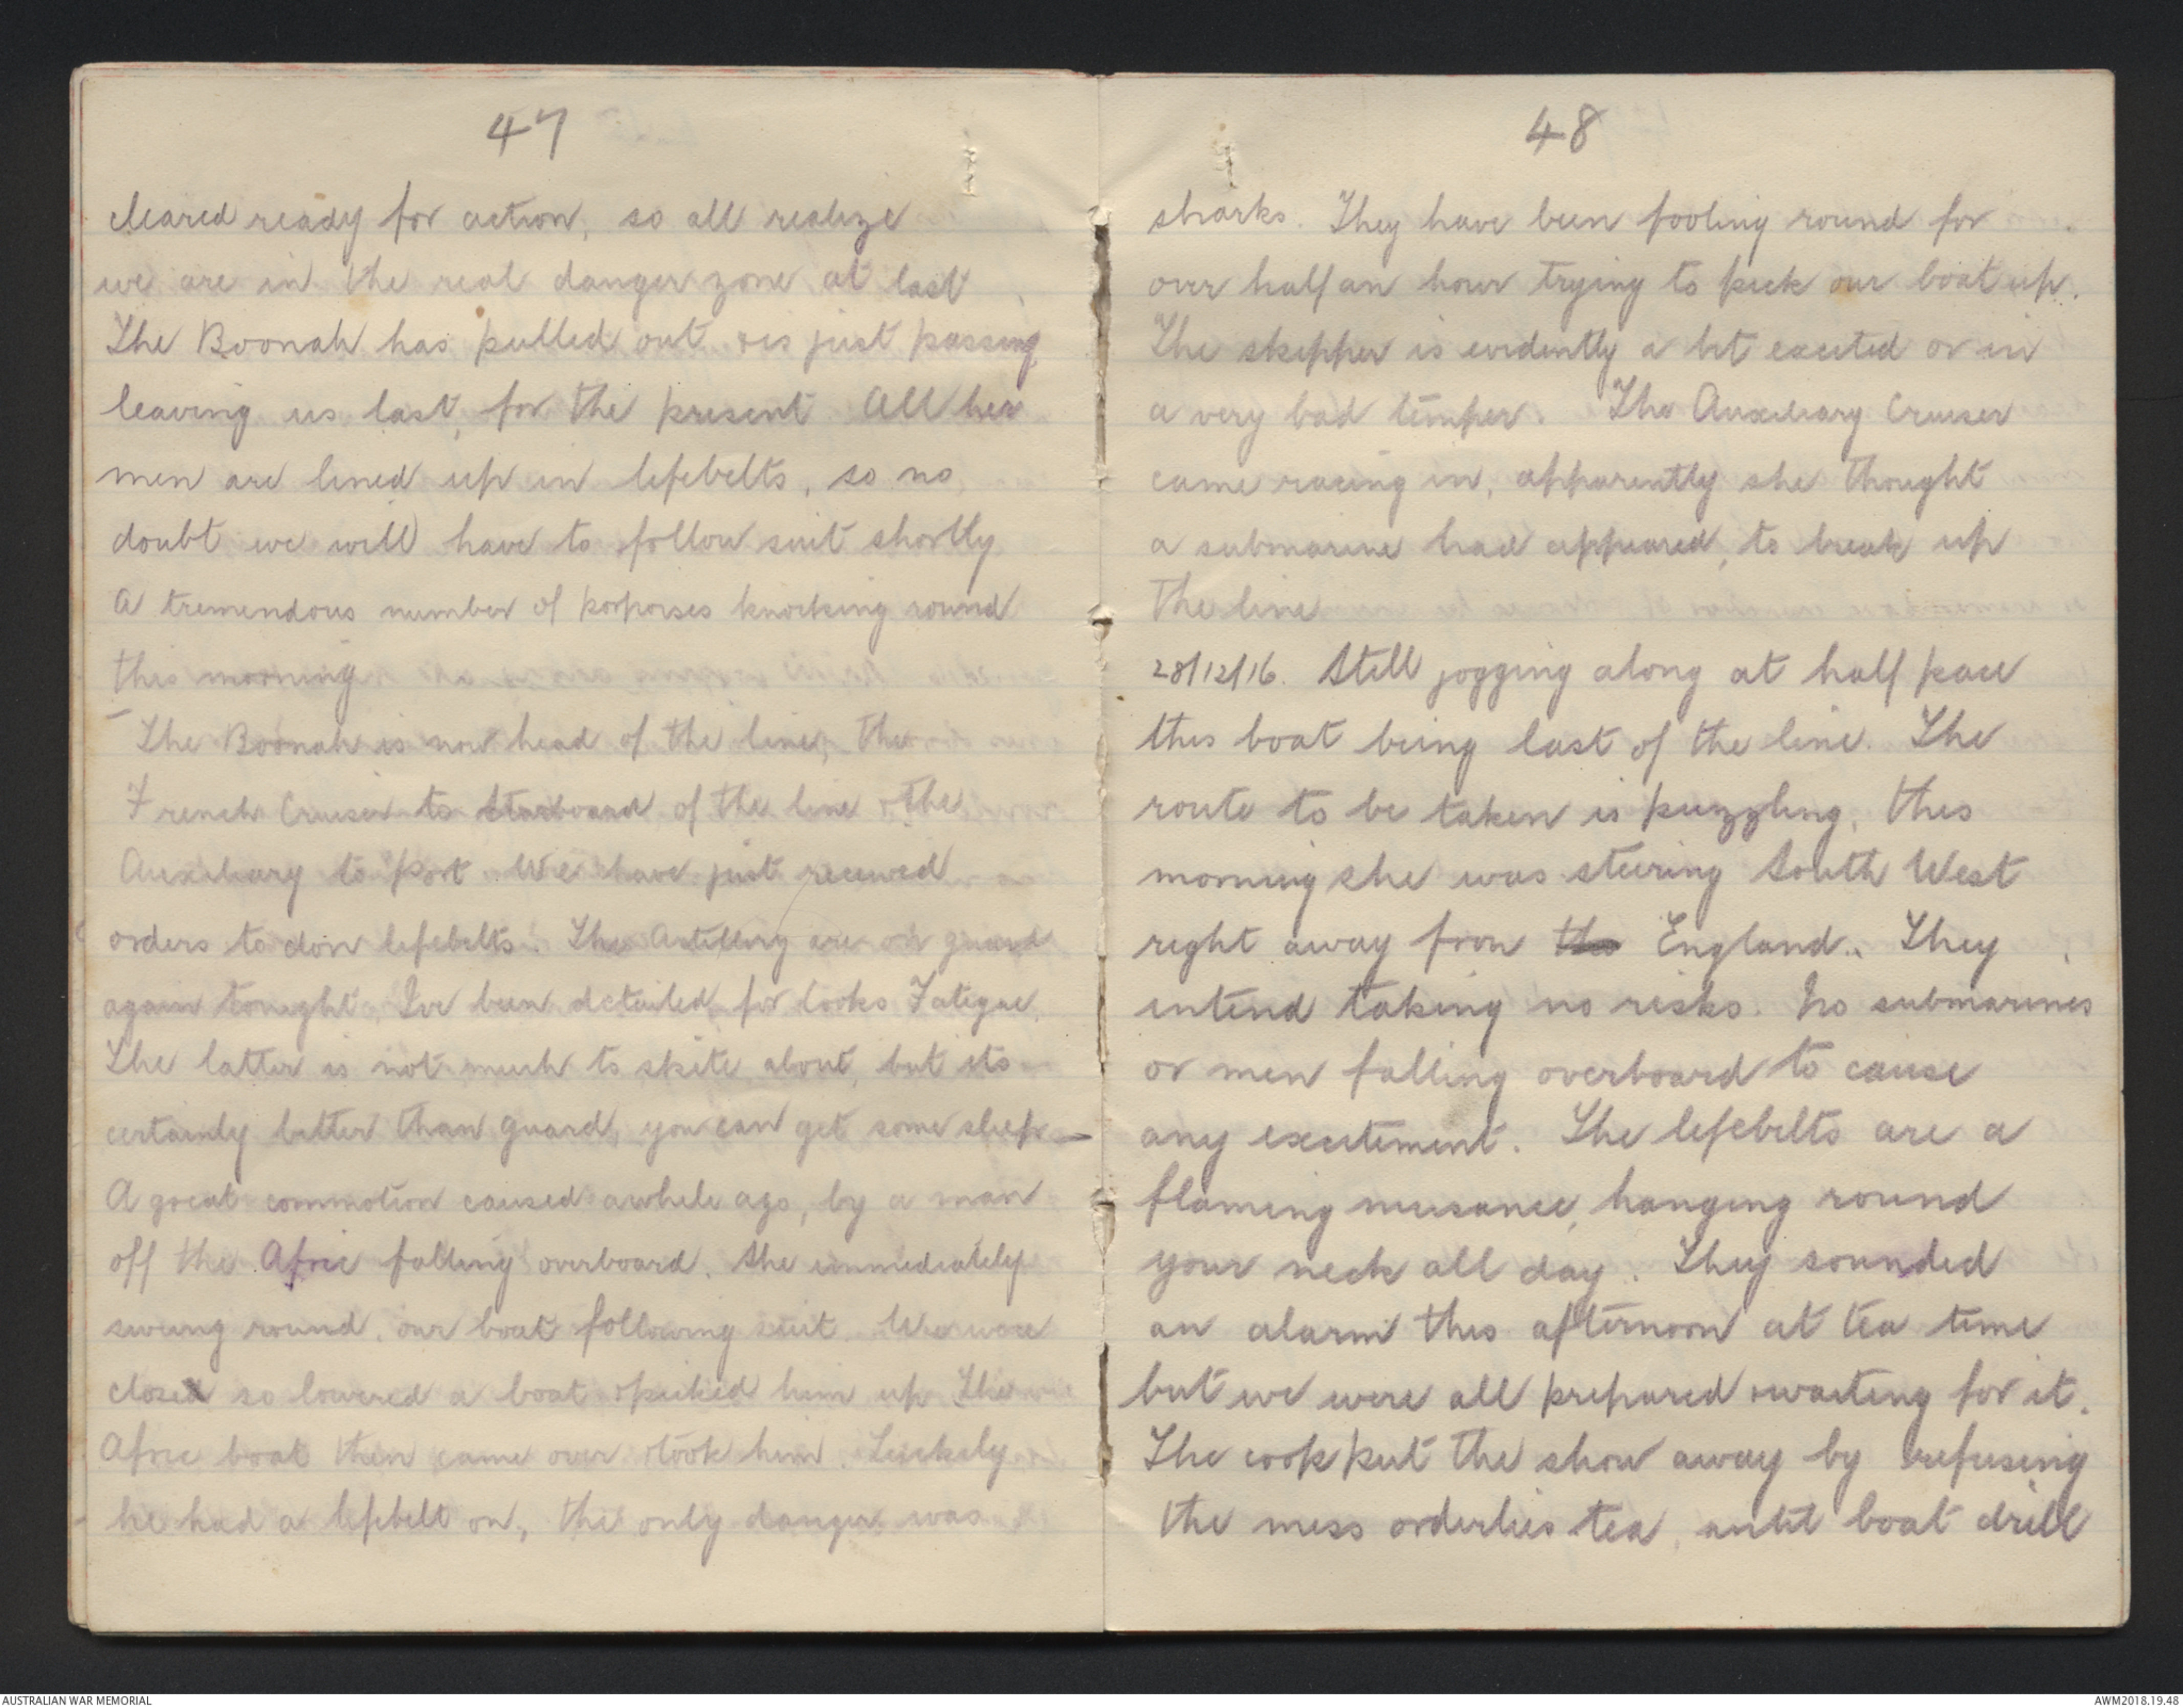 47
cleared ready for action, so all realize
we are in the real danger zone at last
The Boonah has pulled out & is just passing
leaving us last, for the present. All her
men are lined up in lifebelts, so no
doubt we will have to follow suit shortly
A tremendous number of porpoises knocking round
this morning
The Boonah is now head of the line, the
French Cruiser to starboard of the line & the
Auxiliary to port. We have just received
orders to don lifebelts. The Artillery are on guard
again tonight. Ive been detailed for Cooks Fatigue.
The latter is not much to skite about, but its
certainly better than guard, you can get some sleep
A great commotion caused awhile ago, by a man
off the Afric falling overboard. She immediately
swung round, our boat following suit. We were
closer so lowered a boat & picked him up. The
Afric boat then came over & took him. Luckily
he had a lifebelt on, the only danger was
48
sharks. They have been fooling round for
over half an hour trying to pick our boat up.
The skipper is evidently a bit excited or in
a very bad temper. The Auxiliary Cruiser
came racing in, apparently she thought
a submarine had appeared, to break up
the line
28/12/16. Still jogging along at half pace
this boat being last of the line. The
route to be taken is puzzling, this
morning she was steering South West
right away from the England. They
intend taking no risks. No submarines
or men falling overboard to cause
any excitement. The lifebelts are a
flaming nuisance, hanging round
your neck all day. They sounded
an alarm this afternoon at tea time
but we were all prepared & waiting for it.
The cook put the show away by refusing
the mess orderlies tea, until boat drill
AUSTRALIAN WAR MEMORIAL
AWM2018.19.48